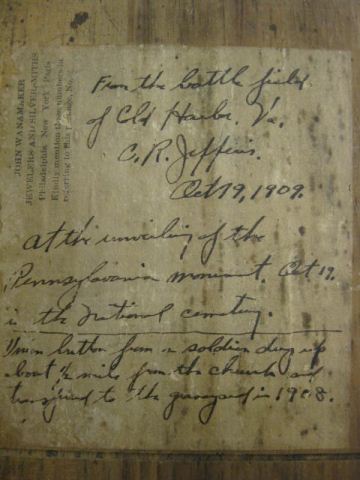 JOHN WANAMAKER
JEWELERS AND SILVERSMITHS
Philadelphia New York Paris
Kindly mention these numbers in
referring to this Package, No.
From the battle field
of Cld Harbor. Va.
C. R. Jeffries.
Oct 19, 1909.
at the unveiling of the
Pennsylvania monument. Oct 19.
in the National cemetery.
Union button from a soldier dug up
about ½ mile from the church and
to the graveyard in 1908.